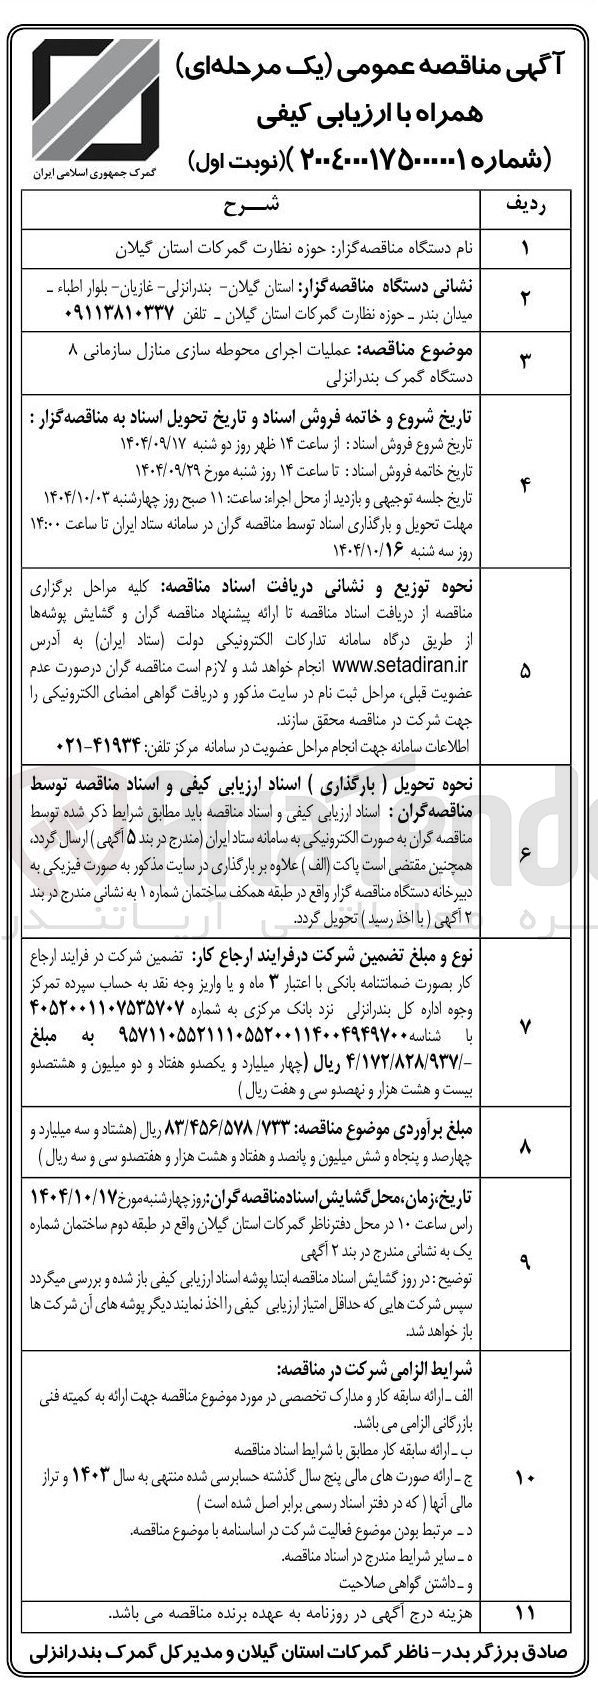 آگهی مناقصه عمومی (یک مرحله‌ای)
همراه با ارزیابی کیفی
(شماره ۲۰۰۴۰۰۰۱۷۵۰۰۰۰۰۱)(نوبت اول)
گمرک جمهوری اسلامی ایران
ردیف شـــرح
۱ نام دستگاه مناقصه‌گزار: حوزه نظارت گمرکات استان گیلان
۲ نشانی دستگاه مناقصه‌گزار: استان گیلان- بندرانزلی- غازیان- بلوار اطباء ـ
میدان بندر ـ حوزه نظارت گمرکات استان گیلان ـ تلفن ۰۹۱۱۳۸۱۰۳۳۷
۳ موضوع مناقصه: عملیات اجرای محوطه سازی منازل سازمانی ۸
دستگاه گمرک بندرانزلی
۴ تاریخ شروع و خاتمه فروش اسناد و تاریخ تحویل اسناد به مناقصه‌گزار :
تاریخ شروع فروش اسناد : از ساعت ۱۴ ظهر روز دو شنبه ۱۴۰۴/۰۹/۱۷
تاریخ خاتمه فروش اسناد : تا ساعت ۱۴ روز شنبه مورخ ۱۴۰۴/۰۹/۲۹
تاریخ جلسه توجیهی و بازدید از محل اجراء: ساعت: ۱۱ صبح روز چهارشنبه ۱۴۰۴/۱۰/۰۳
مهلت تحویل و بارگذاری اسناد توسط مناقصه گران در سامانه ستاد ایران تا ساعت ۱۴:۰۰
روز سه شنبه ۱۴۰۴/۱۰/۱۶
۵ نحوه توزیع و نشانی دریافت اسناد مناقصه: کلیه مراحل برگزاری
مناقصه از دریافت اسناد مناقصه تا ارائه پیشنهاد مناقصه گران و گشایش پوشه‌ها
از طریق درگاه سامانه تدارکات الکترونیکی دولت (ستاد ایران) به آدرس
www.setadiran.ir انجام خواهد شد و لازم است مناقصه گران درصورت عدم
عضویت قبلی، مراحل ثبت نام در سایت مذکور و دریافت گواهی امضای الکترونیکی را
جهت شرکت در مناقصه محقق سازند.
اطلاعات سامانه جهت انجام مراحل عضویت در سامانه مرکز تلفن: ۴۱۹۳۴-۰۲۱
۶ نحوه تحویل ( بارگذاری ) اسناد ارزیابی کیفی و اسناد مناقصه توسط
مناقصه‌گران : اسناد ارزیابی کیفی و اسناد مناقصه باید مطابق شرایط ذکر شده توسط
مناقصه گران به صورت الکترونیکی به سامانه ستاد ایران (مندرج در بند ۵ آگهی) ارسال گردد،
همچنین مقتضی است پاکت (الف ) علاوه بر بارگذاری در سایت مذکور به صورت فیزیکی به
دبیرخانه دستگاه مناقصه گزار واقع در طبقه همکف ساختمان شماره ۱ به نشانی مندرج در بند
۲ آگهی ( با اخذ رسید ) تحویل گردد.
۷ نوع و مبلغ تضمین شرکت درفرایند ارجاع کار: تضمین شرکت در فرایند ارجاع
کار بصورت ضمانتنامه بانکی با اعتبار ۳ ماه و یا واریز وجه نقد به حساب سپرده تمرکز
وجوه اداره کل بندرانزلی نزد بانک مرکزی به شماره ۴۰۵۲۰۰۱۱۰۷۵۳۵۷۰۷
با شناسه ۹۵۷۱۱۰۵۵۲۱۱۱۰۵۵۲۰۰۱۱۴۰۰۴۹۴۹۷۰۰ به مبلغ
۴/۱۷۲/۸۲۸/۹۳۷/- ریال (چهار میلیارد و یکصدو هفتاد و دو میلیون و هشتصدو
بیست و هشت هزار و نهصدو سی و هفت ریال )
۸ مبلغ برآوردی موضوع مناقصه: ۸۳/۴۵۶/۵۷۸/۷۳۳ ریال (هشتاد و سه میلیارد و
چهارصد و پنجاه و شش میلیون و پانصد و هفتاد و هشت هزار و هفتصدو سی و سه ریال )
۹ تاریخ،زمان،محل‌گشایش‌اسنادمناقصه‌گران: روز چهارشنبه مورخ ۱۴۰۴/۱۰/۱۷
راس ساعت ۱۰ در محل دفترناظر گمرکات استان گیلان واقع در طبقه دوم ساختمان شماره
یک به نشانی مندرج در بند ۲ آگهی
توضیح : در روز گشایش اسناد مناقصه ابتدا پوشه اسناد ارزیابی کیفی باز شده و بررسی میگردد
سپس شرکت هایی که حداقل امتیاز ارزیابی کیفی را اخذ نمایند دیگر پوشه های آن شرکت ها
باز خواهد شد.
۱۰ شرایط الزامی شرکت در مناقصه:
الف ـ ارائه سابقه کار و مدارک تخصصی در مورد موضوع مناقصه جهت ارائه به کمیته فنی
بازرگانی الزامی می باشد.
ب ـ ارائه سابقه کار مطابق با شرایط اسناد مناقصه
ج ـ ارائه صورت های مالی پنج سال گذشته حسابرسی شده منتهی به سال ۱۴۰۳ و تراز
مالی آنها ( که در دفتر اسناد رسمی برابر اصل شده است )
د ـ مرتبط بودن موضوع فعالیت شرکت در اساسنامه با موضوع مناقصه.
ه ـ سایر شرایط مندرج در اسناد مناقصه.
و ـ داشتن گواهی صلاحیت
۱۱ هزینه درج آگهی در روزنامه به عهده برنده مناقصه می باشد.
صادق برزگر بدر- ناظر گمرکات استان گیلان و مدیرکل گمرک بندرانزلی